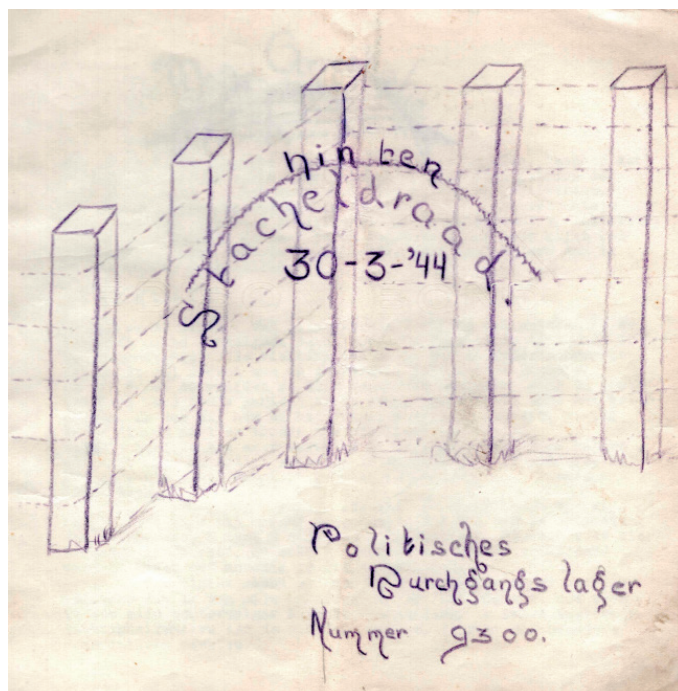 hinten
Stacheldraad.
30-3-'44
Politisches
Durchgangs lager
Nummer 9300.